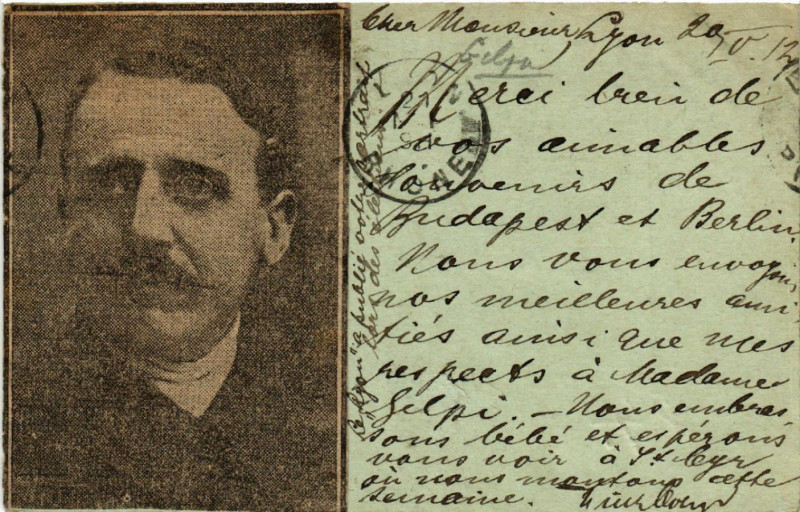 Cher Monsieur, Lyon 20 V. 12
Merci bien de
vos aimables
souvenirs de
Budapest et Berlin.
Nous vous envoyons
nos meilleures ami
tiés ainsi que mes
respects à Madame
Gelpi. — Nous embras
sons bébé et espérons
vous voir à St Cyr
où nous montons cette
semaine.
Gelpi
"Lyon" a publié votre portrait
lors des élections